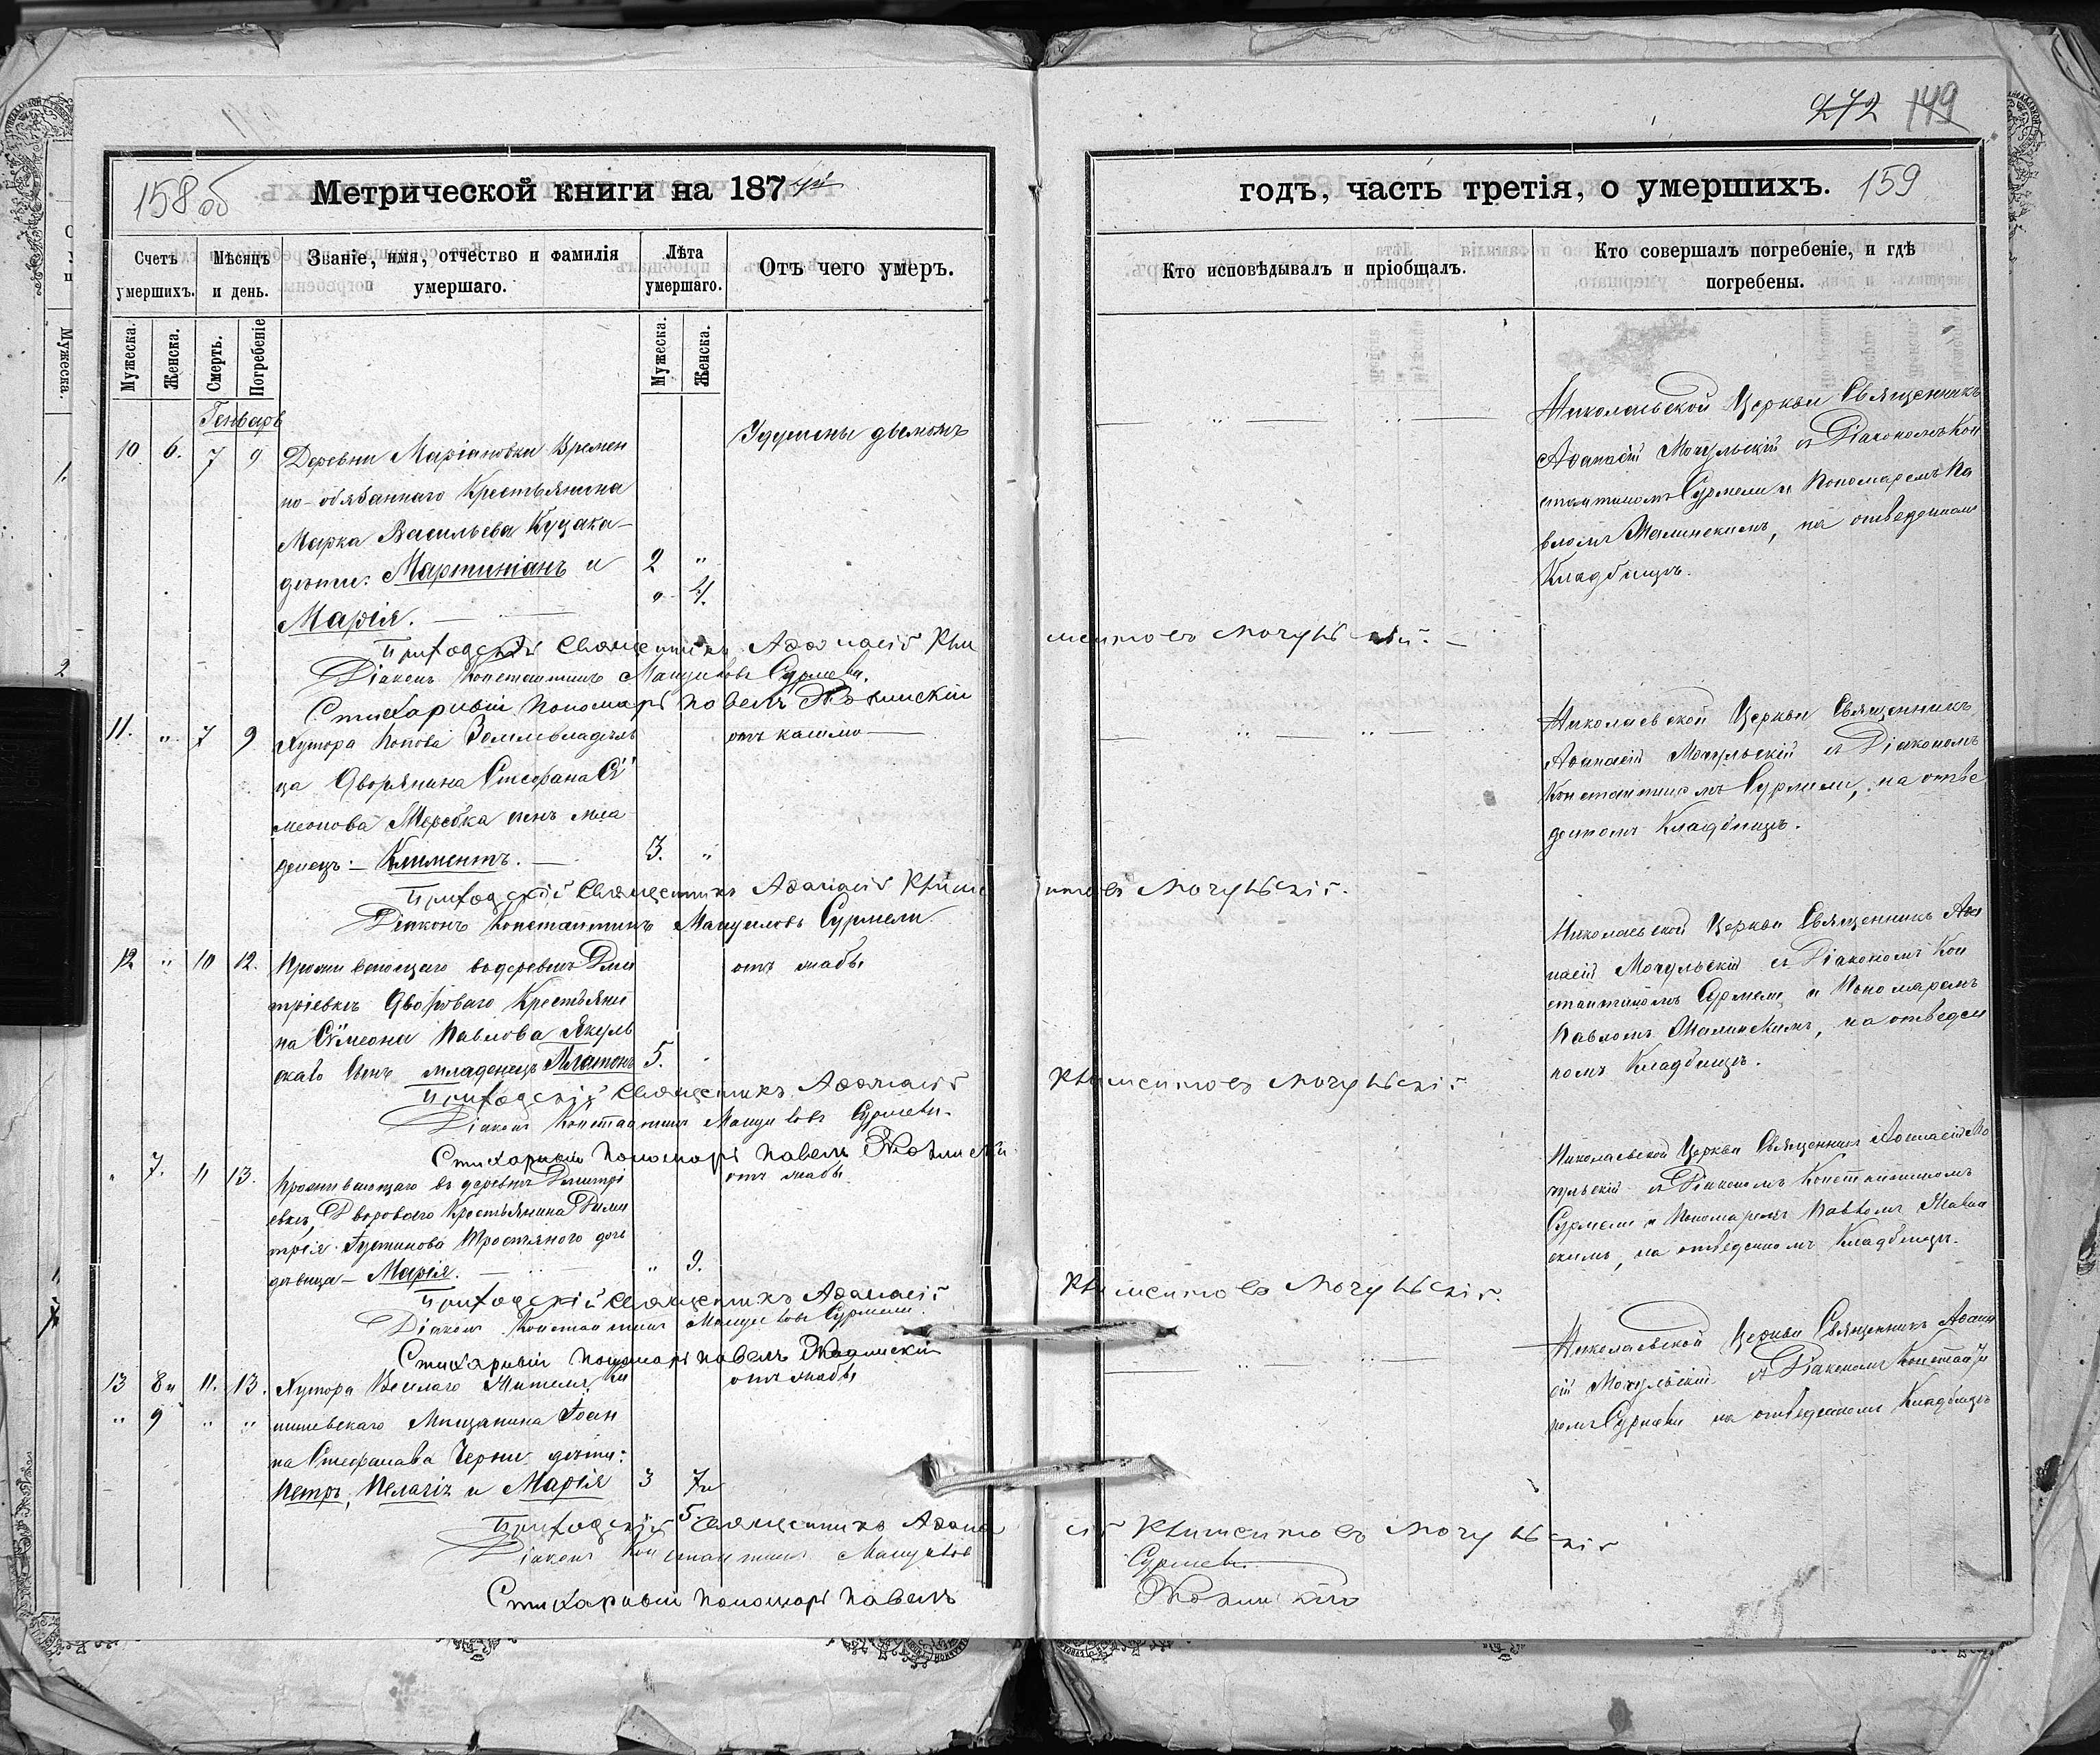 272 149
158 об
Метрической книги на 187
годъ, часть третія, о умершихъ. 159
Счетъ умершихъ.
Мѣсяцъ и день.
Званіе, имя, отчество и фамилія умершаго.
Лѣта умершаго.
Отъ чего умеръ.
Кто исповѣдывалъ и пріобщалъ.
Кто совершалъ погребеніе, и гдѣ погребены.
Мужеска.
Женска.
Смерть.
Погребеніе
Мужеска.
Женска.
Генварь
10. 6. 7 9
Деревни Маріановки Времен
но-обязаннаго Крестьянина
Марка Васильева Куцака
дѣти: Мартиніанъ и 2 "
Марія. " 4.
дымомъ
Николаевской Церкви Священникъ
Аѳанасій Мочульскій съ Діакономъ Кон
стантиномъ Сурмели и Пономаремъ Па
вломъ, на отведенномъ
Кладбищѣ.
Приходскій Священникъ Аѳанасій Климентовъ Мочульскій.
Діаконъ Константинъ Мануиловъ Сурмели.
Стихарный Пономарь Павелъ
11. " 7 9
Хутора Попова Землевладѣль
ца Дворянина Стефана Сѵ
меонова сынъ мла
денецъ: Климентъ. 3. "
отъ кашлю
Николаевской Церкви Священникъ
Аѳанасій Мочульскій съ Діакономъ
Константиномъ Сурмели, на отве
денномъ Кладбищѣ.
Приходскій Священникъ Аѳанасій Климентовъ Мочульскій.
Діаконъ Константинъ Мануиловъ Сурмели
12 " 10 12.
Проживающаго въ деревнѣ Дми
тріевкѣ Двороваго Крестьяни
на Сѵмеона Павлова
скаго сынъ младенецъ Платонъ 5.
отъ жабы
Николаевской Церкви Священникъ Аѳа
насій Мочульскій съ Діакономъ Кон
стантиномъ Сурмели и Пономаремъ
Павломъ, на отведен
номъ Кладбищѣ.
Приходскій Священникъ Аѳанасій Климентовъ Мочульскій
Діаконъ Константинъ Мануиловъ Сурмели.
Стихарный Пономарь Павелъ
" 7. 11 13.
Проживающаго въ деревнѣ Дмитрі
евкѣ, Дворового Крестьянина Дими
трія Іустинова Тростяного дочь
дѣвица — Марія. " 9.
отъ жабы.
Николаевской Церкви Священникъ Аѳанасій Мо
чульскій съ Діакономъ Константиномъ
Сурмели и Пономаремъ Павломъ
скимъ, на отведенномъ Кладбищѣ.
Приходскій Священникъ Аѳанасій Климентовъ Мочульскій.
Діаконъ Константинъ Мануиловъ Сурмели.
Стихарный Пономарь Павелъ
13 8 и 11. 13.
" 9 " "
Хутора Веселаго Житель, Ки
шиневскаго Мещанина Іоан
на Стефанова Черни дѣти:
Петръ, Пелагія и Марія 3 7 и
5.
отъ жабы
Николаевской Церкви Священникъ Аѳана
сій Мочульскій съ Діакономъ Константи
номъ Сурмели на отведенномъ Кладбищѣ
Приходскій Священникъ Аѳанасій Климентовъ Мочульскій
Діаконъ Константинъ Мануиловъ Сурмели
Стихарный Пономарь Павелъ